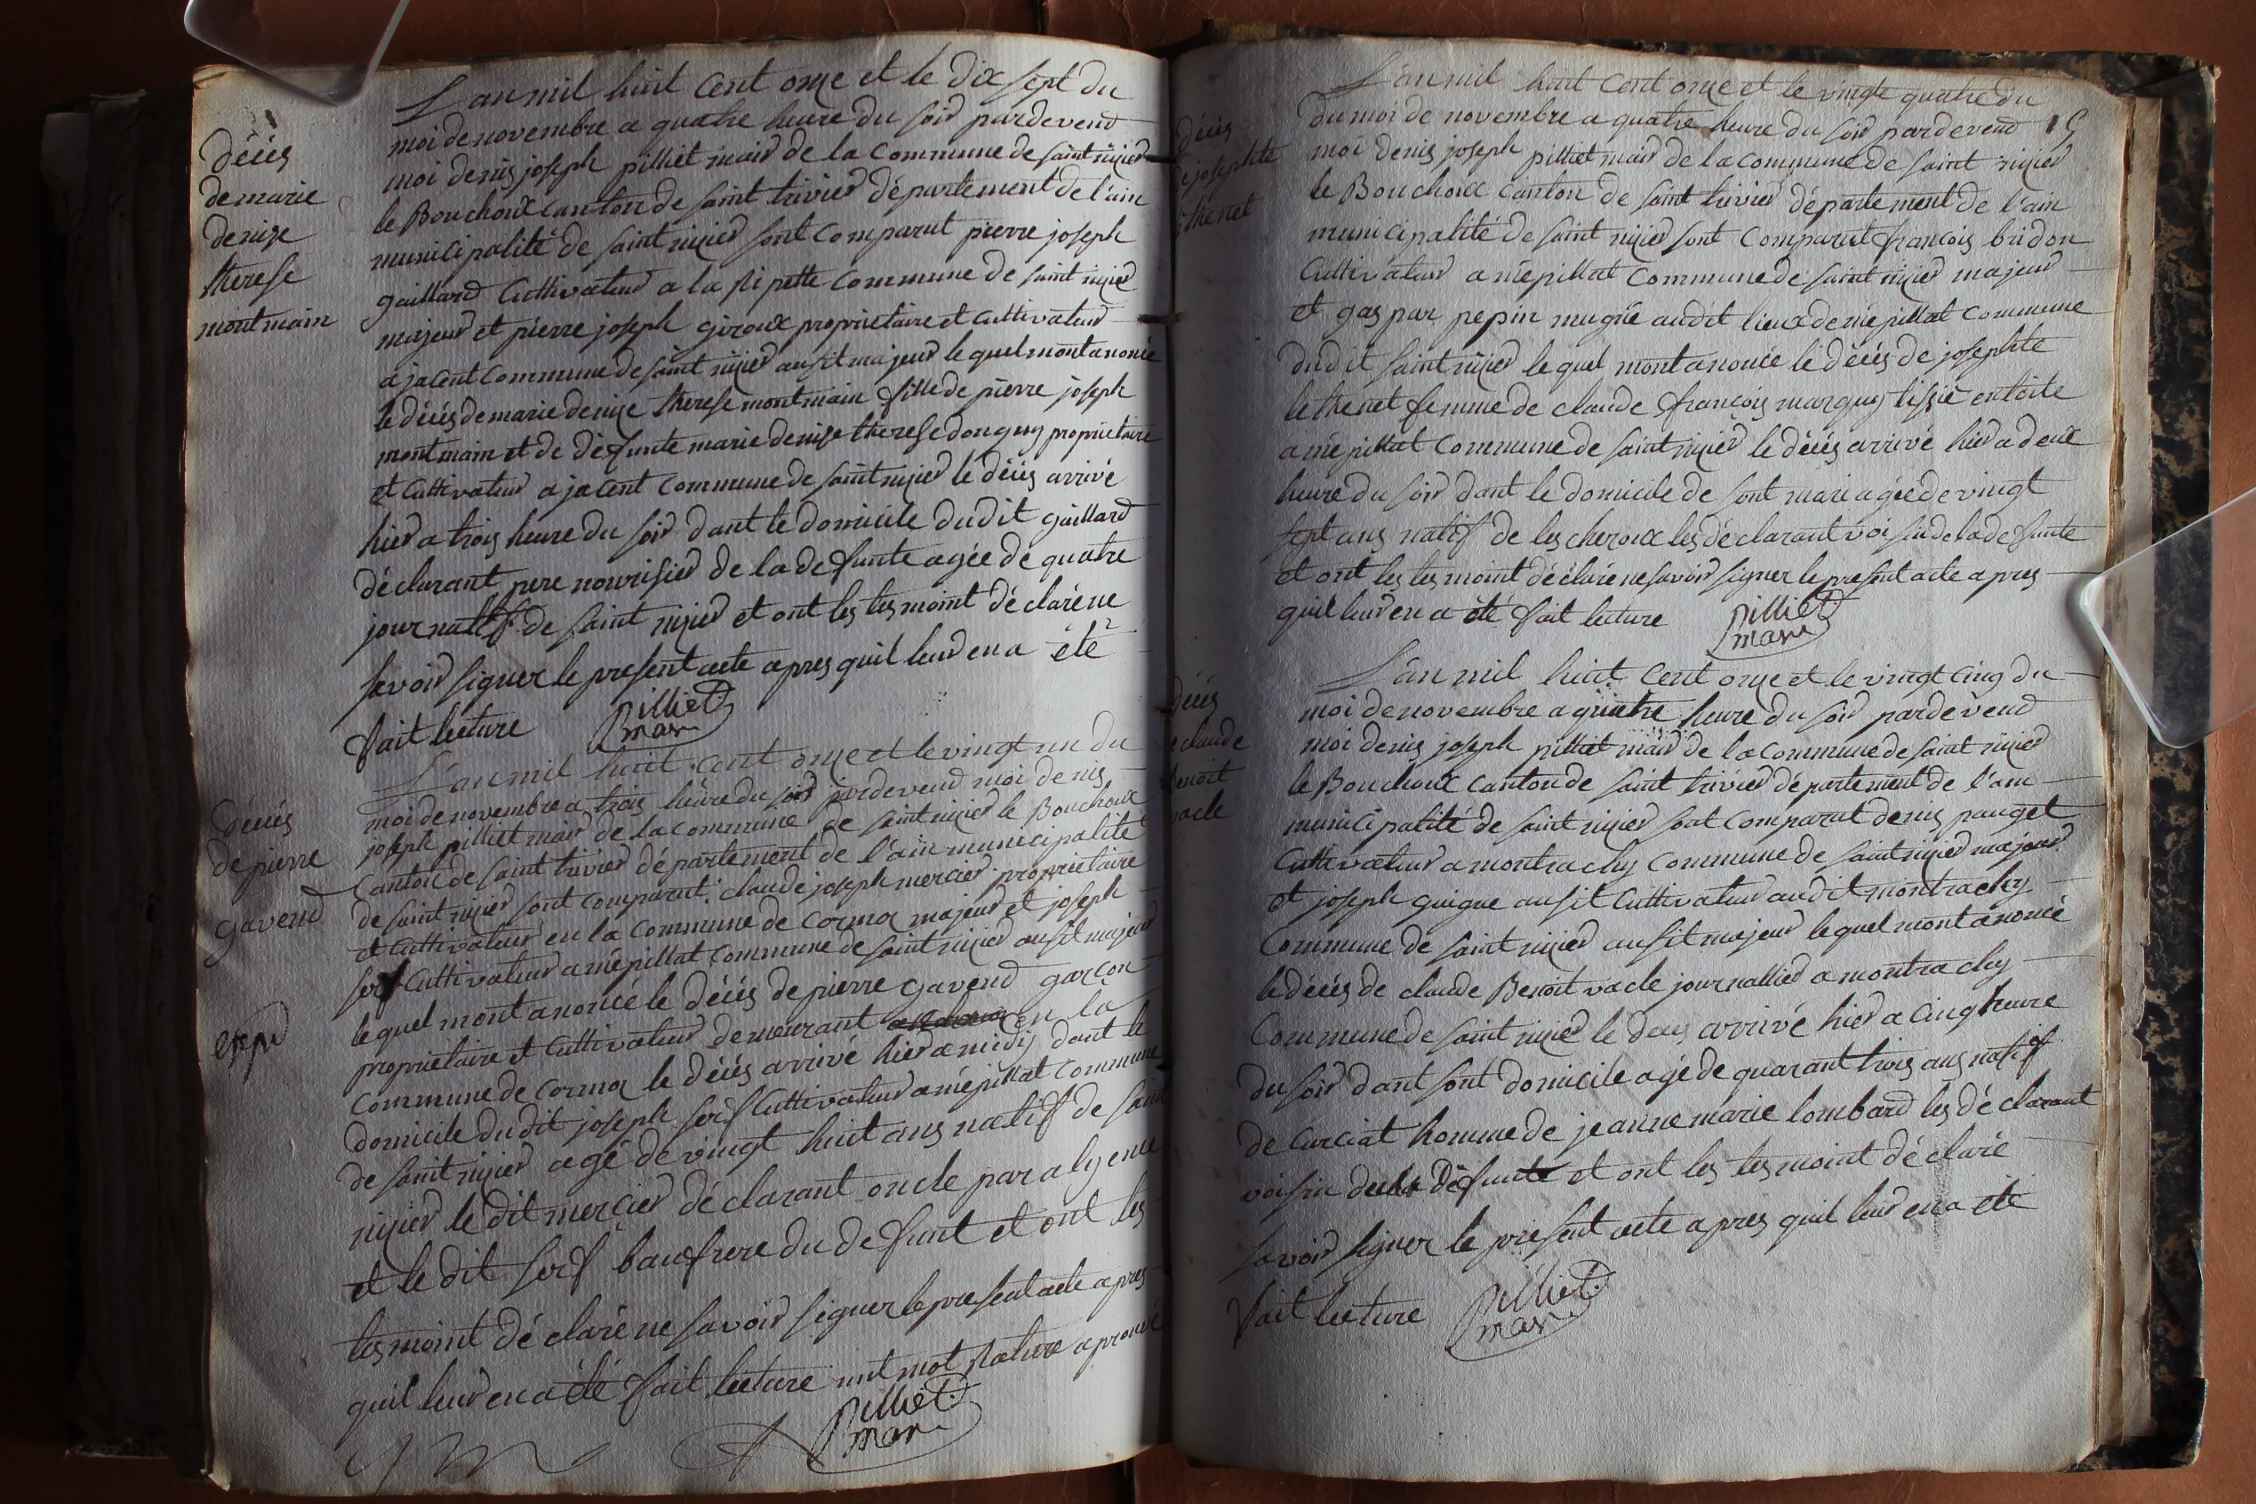 décés
de marie
denize
therese
montmain
L'an mil huit cent onze et le dix sept du
moi de novembre a quatre heure du soir pardevend
moi denis joseph pilliet mair de la commune de saint nizier
le Bouchoux canton de saint trivier département de l'ain
municipalité de saint nizier sont comparut pierre joseph
gaillard Cultivateur a la pipette commune de saint nizier
majeur et pierre joseph giroux proprietaire et cultivateur
a jacent commune de saint nizier ausit majeur lequel mont anoncé
le décés de marie denize therese montmain fille de pierre joseph
montmain et de défunte marie denize therese donguy proprietaire
et Cultivateur a jacent commune de saint nizier le décés arrivé
hier a trois heure du soir dant le domicile dudit gaillard
déclarant pere nourisier de la defunte agée de quatre
jour natif de saint nizier et ont les tesmoint déclaré ne
savoir signer le present acte apres quil leur en a été
fait lecture Pilliet
mair
décés
de pierre
gavend
L'an mil huit cent onze et le vingt un du
moi de novembre a trois heure du soir pardevend moi denis
joseph pilliet mair de la commune de saint nizier le Bouchoux
Canton de saint trivier département de l'ain municipalité
de saint nizier sont comparut claude joseph mercier proprietaire
et cultivateur en la commune de cormoz majeur et joseph
serf Cultivateur a mépillat commune de saint nizier ausit majeur
lequel mont anoncé le décés de pierre gavend garçon
proprietaire et Cultivateur demeurant en la
commune de cormoz le décés arrivé hier a midy dant le
domicile dudit joseph serf Cultivateur a mépillat commune
de saint nizier agé de vingt huit ans natif de saint
nizier le dit mercier déclarant oncle par alyence
et le dit serf baufrere du defunt et ont les
tesmoint déclaré ne savoir signer le present acte apres
quil leur en a été fait lecture unt mot rature aprouvé
Pilliet
mair
15
décés
de josephte
lethenet
L'an mil huit cent onze et le vingt quatre du
du moi de novembre a quatre heure du soir pardevend
moi denis joseph pilliet mair de la commune de saint nizier
le Bouchoux canton de saint trivier département de l'ain
municipalité de saint nizier sont comparut françois bridon
Cultivateur a mépillat commune de saint nizier majeur
et gaspar pepin mugnié audit lieux de mépillat commune
dudit saint nizier lequel mont anoncé le décés de josephte
lethenet femme de claude françois marguy tissié en toile
a mépillat commune de saint nizier le décés arrivé hier a deux
heure du soir dant le domicile de sont mari agée de vingt
sept ans natif de les cheroux les déclarant voisin de la defunte
et ont les tesmoint déclaré ne savoir signer le present acte apres
quil leur en a été fait lecture Pilliet
mair
décés
de claude
Benoit
vacle
L'an mil huit cent onze et le vingt cinq du
moi de novembre a quatre heure du soir pardevend
moi denis joseph pilliet mair de la commune de saint nizier
le Bouchoux canton de saint trivier département de l'ain
municipalité de saint nizier sont comparut denis pauget
Cultivateur a montrachy commune de saint nizier majeur
et joseph guigue ausit Cultivateur audit montrachy
Commune de saint nizier ausit majeur lequel mont anoncé
le décés de claude Benoit vacle journallier a montrachy
Commune de saint nizier le décés arrivé hier a cinq heure
du soir dant sont domicile agé de quarant trois ans natif
de Curciat homme de jeanne marie lombard les déclarant
voisin défunt et ont les tesmoint déclaré
savoir signer le present acte apres quil leur en a été
fait lecture Pilliet
mair